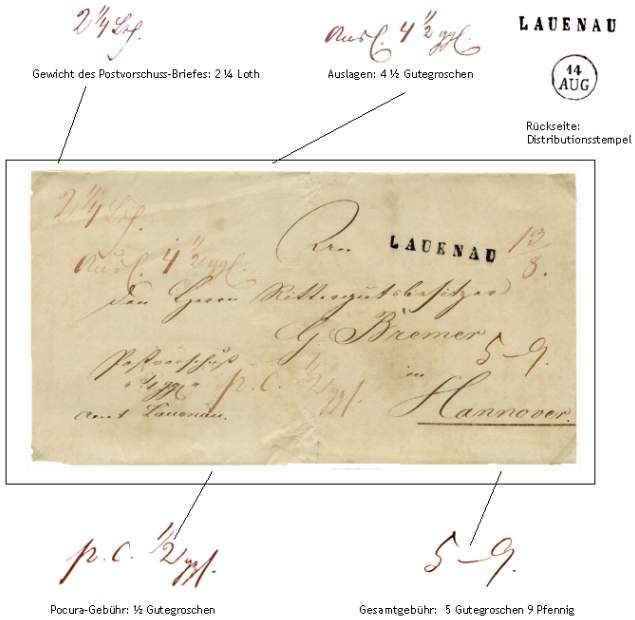 2 1/4 Lth.
Ausl. 4 1/2 ggl.
LAUENAU
Gewicht des Postvorschuss-Briefes: 2 ¼ Loth
Auslagen: 4 ½ Gutegroschen
14
AUG
Rückseite:
Distributionsstempel
2 1/4 Lth.
LAUENAU
13/8.
Ausl. 4 1/2 ggl.
den Herrn Rittergutsbesitzer
G Bremer
5 - 9.
Postvorschuß
p. C. 1/2 ggl.
in
Amt Lauenau.
Hannover.
p. C. 1/2 ggl.
5 - 9.
Pocura-Gebühr: ½ Gutegroschen
Gesamtgebühr: 5 Gutegroschen 9 Pfennig